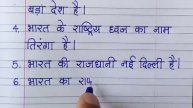 बड़ा देश है।
4. भारत के राष्ट्रीय ध्वज का नाम
तिरंगा है।
5. भारत की राजधानी नई दिल्ली है।
6. भारत का रा